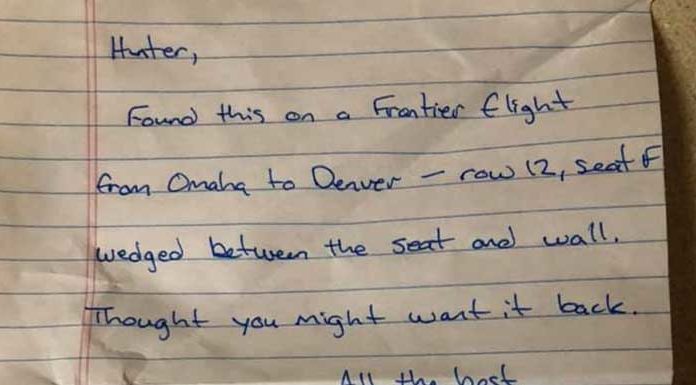 Hunter,
Found this on a Frontier flight
from Omaha to Denver – row 12, seat F
wedged between the seat and wall.
Thought you might want it back.
All the best